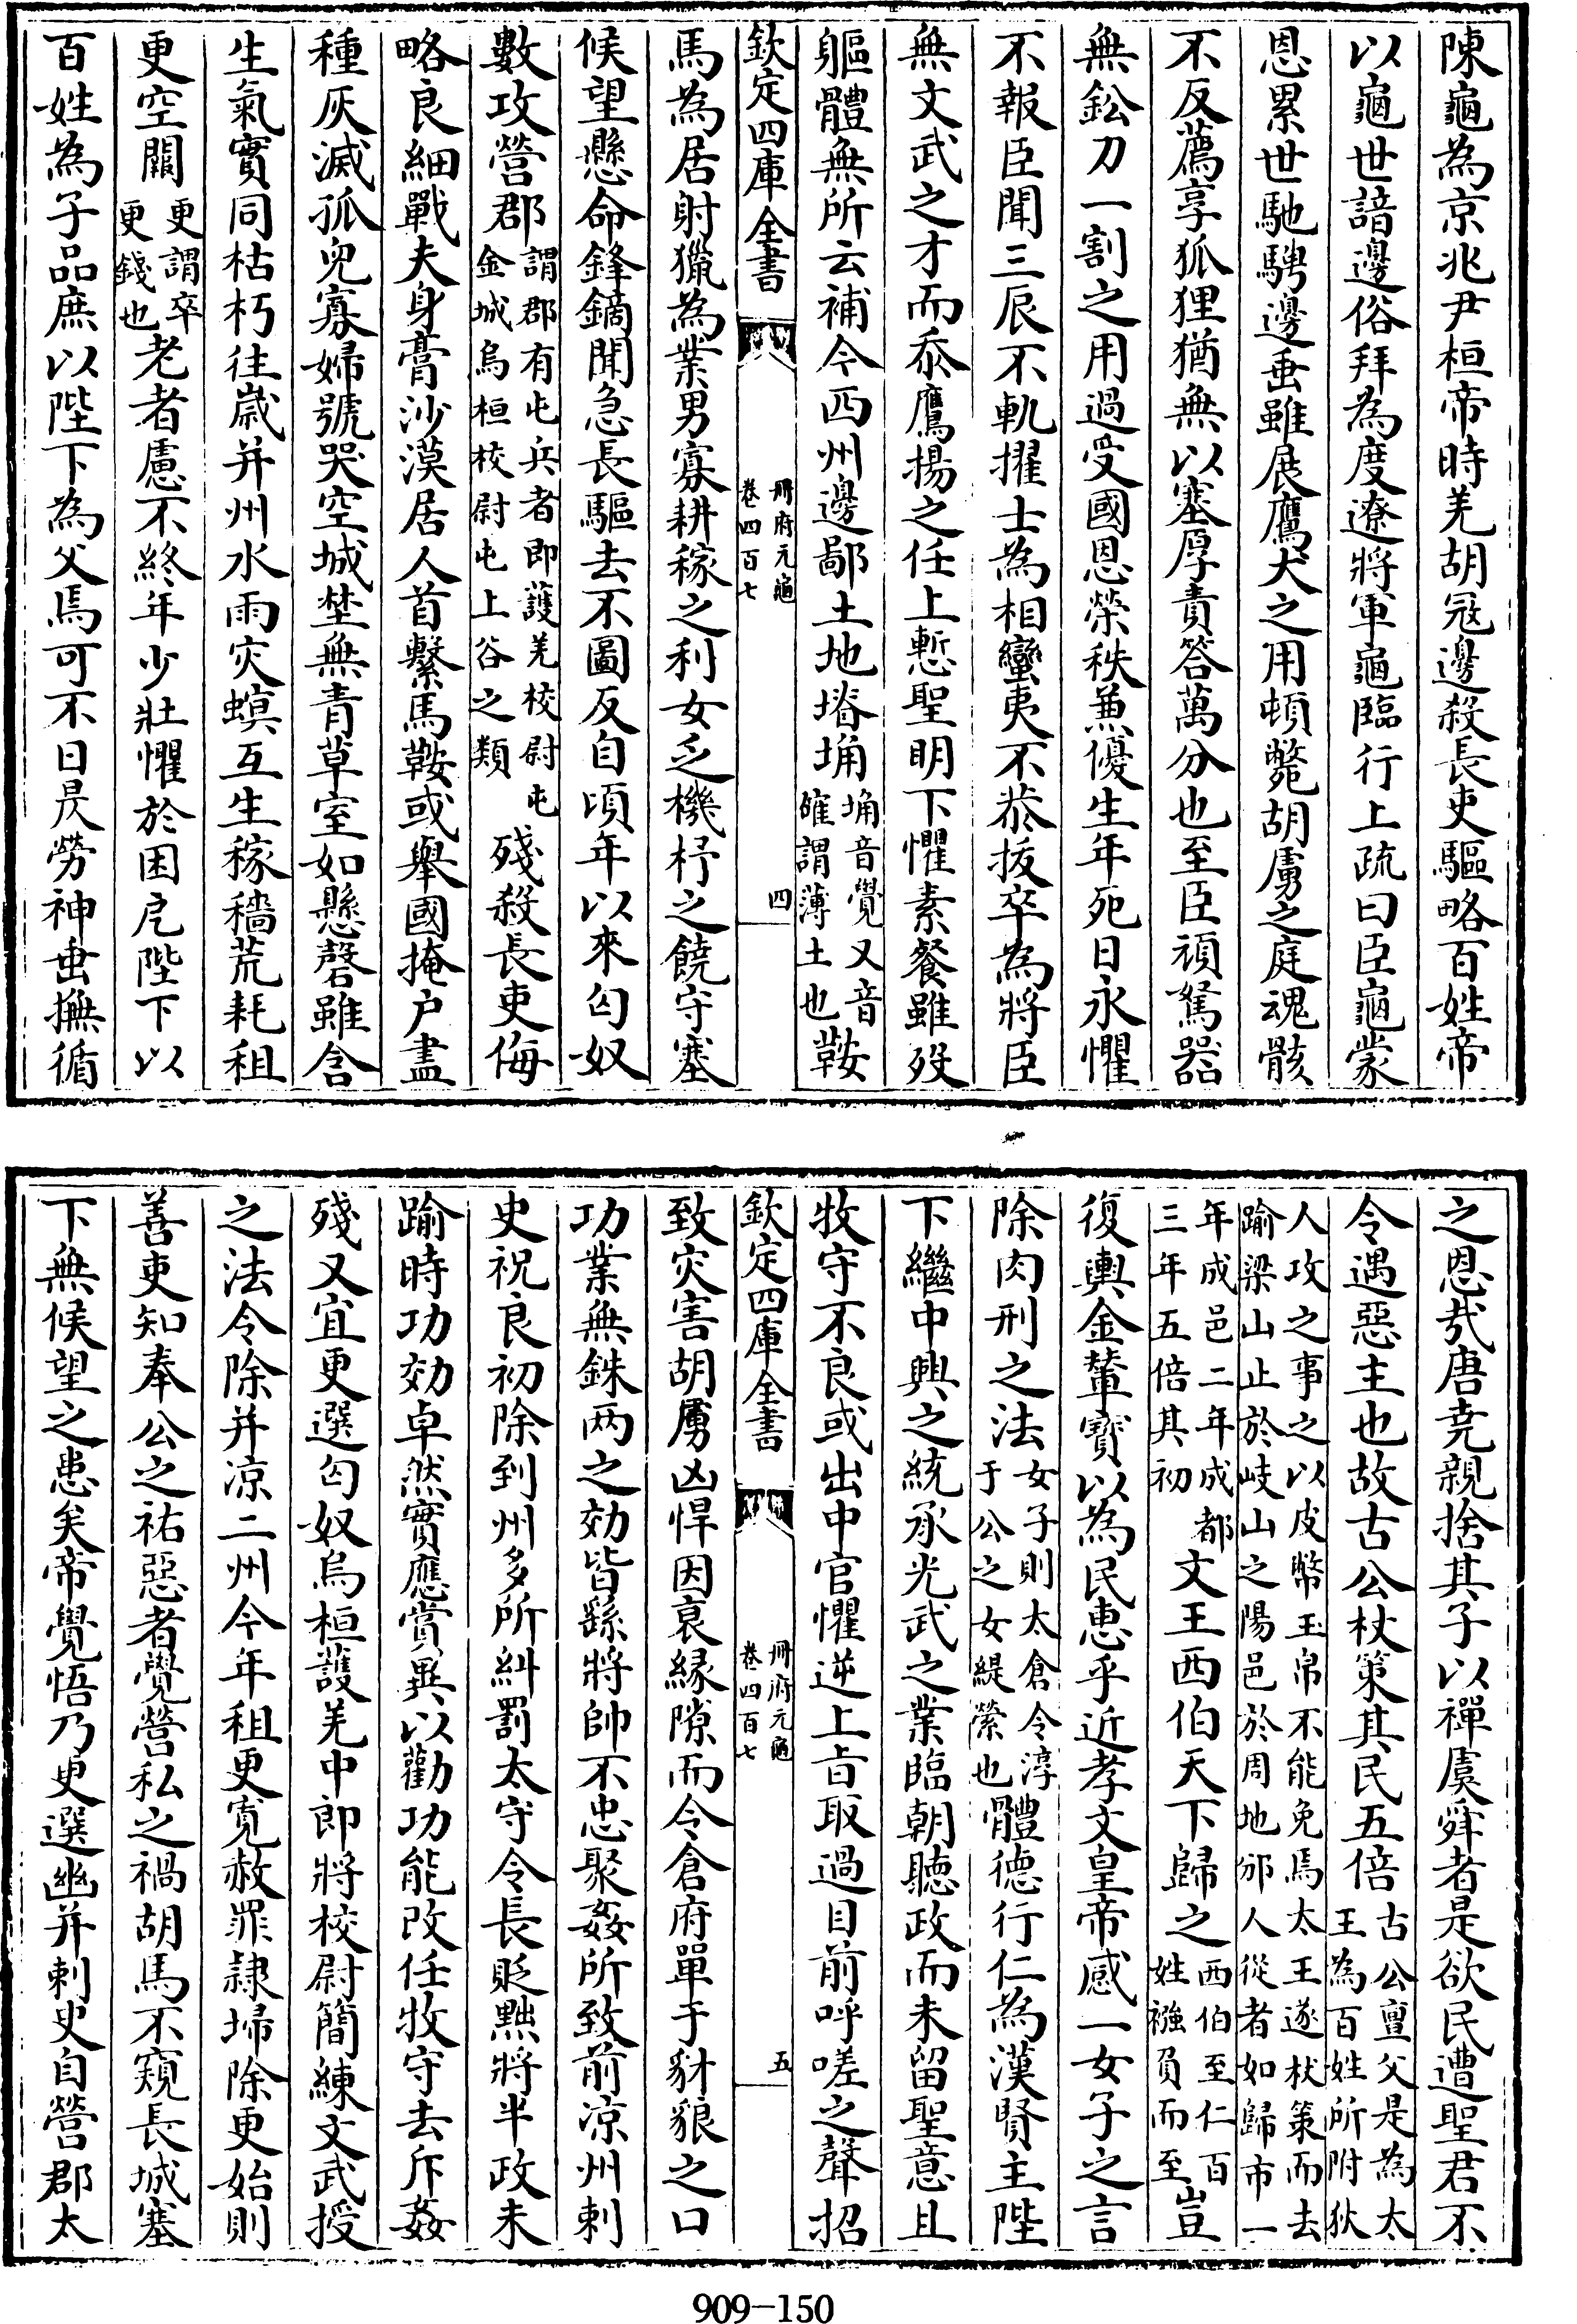 陳龜為京兆尹桓帝時羌胡冦邊殺長吏驅略百姓帝
以龜世諳邊俗拜為度遼將軍龜臨行上疏曰臣龜蒙
恩累世馳騁邊垂雖展鷹犬之用頓斃胡虜之庭魂骸
不反薦享狐狸猶無以塞厚責答萬分也至臣頑駑器
無鈆刀一割之用過受國恩榮秩兼優生年死日永懼
不報臣聞三辰不軌擢士為相蠻夷不恭拔卒為將臣
無文武之才而忝鷹揚之任上慙聖明下懼素餐雖歿
軀體無所云補今西州邊鄙土地塉埆埆音覺又音確謂薄土也鞍
欽定四庫全書 冊府元龜卷四百七 四
馬為居射獵為業男寡耕稼之利女乏機杼之饒守塞
候望懸命鋒鏑聞急長驅去不圖反自頃年以來匈奴
數攻營郡謂郡有屯兵者即護羌校尉屯金城烏桓校尉屯上谷之類殘殺長吏侮
略良細戰夫身膏沙漠居人首繫馬鞍或舉國掩户盡
種灰滅孤兒寡婦號哭空城埜無青草室如懸磬雖含
生氣實同枯朽往歲并州水雨灾螟互生稼穡荒耗租
更空闕更謂卒更錢也老者慮不終年少壯懼於困戹陛下以
百姓為子品庶以陛下為父焉可不日昃勞神垂撫循
之恩哉唐堯親捨其子以禪虞舜者是欲民遭聖君不
令遇惡主也故古公杖策其民五倍古公亶父是為太王為百姓所附狄
人攻之事之以皮幣玉帛不能免焉太王遂杖策而去踰梁山止於岐山之陽邑於周地邠人從者如歸市一
年成邑二年成都三年五倍其初文王西伯天下歸之西伯至仁百姓襁負而至豈
復輿金輦寶以為民惠乎近孝文皇帝感一女子之言
除肉刑之法女子則太倉令淳于公之女緹縈也體德行仁為漢賢主陛
下繼中興之統承光武之業臨朝聽政而未留聖意且
牧守不良或出中官懼逆上旨取過目前呼嗟之聲招
欽定四庫全書 冊府元龜卷四百七 五
致灾害胡虜凶悍因衰緣隙而令倉府單于豺狼之口
功業無銖两之効皆繇將帥不忠聚姦所致前凉州刺
史祝良初除到州多所糾罰太守令長貶黜將半政未
踰時功効卓然實應賞異以勸功能改任牧守去斥姦
殘又宜更選匈奴烏桓護羌中郎將校尉簡練文武授
之法令除并凉二州今年租更寛赦罪隸埽除更始則
善吏知奉公之祐惡者覺營私之禍胡馬不窺長城塞
下無候望之患矣帝覺悟乃更選幽并刺史自營郡太
909-150